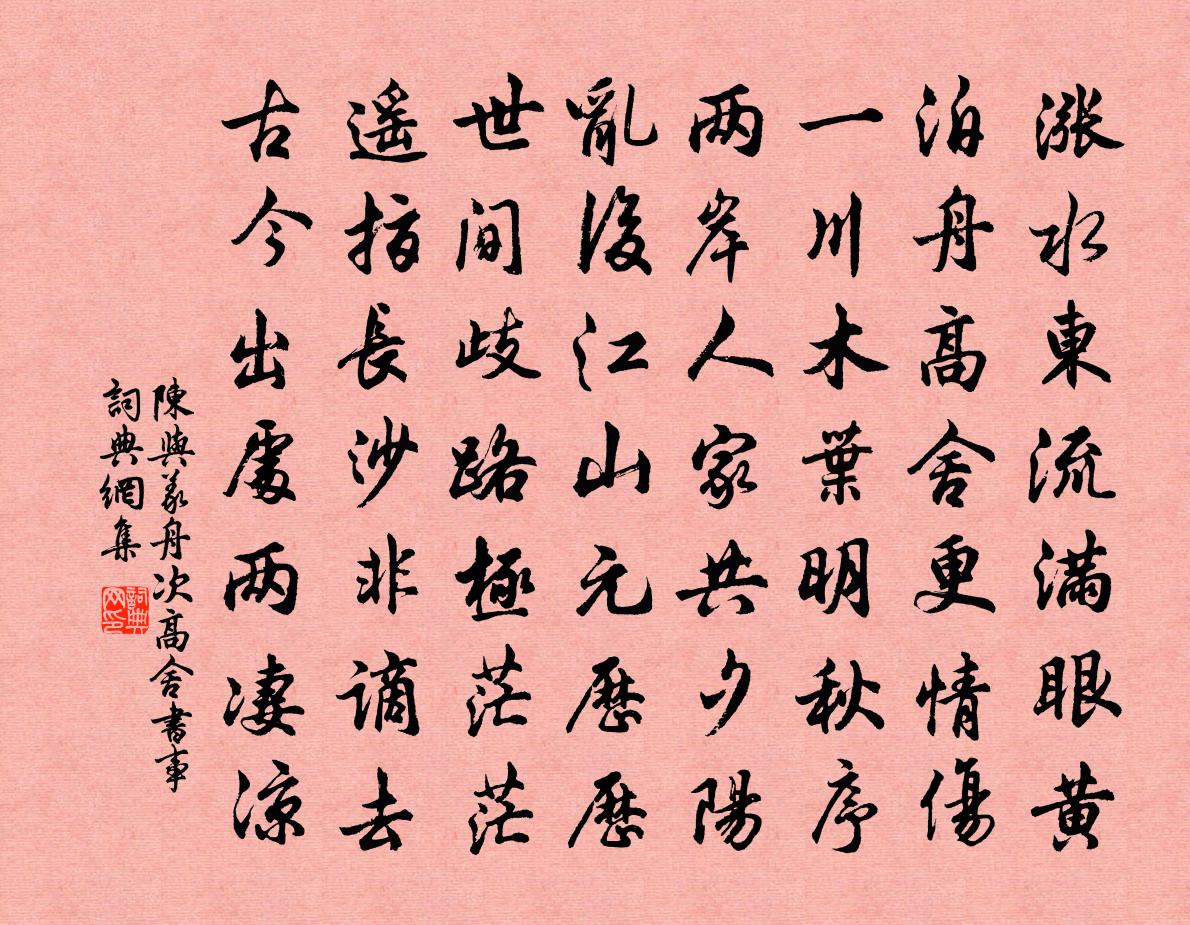 漲水東流滿眼黃
泊舟高舍更情傷
一川木葉明秋序
兩岸人家共夕陽
亂後江山元歷歷
世間歧路極茫茫
遙指長沙非謫去
古今出處兩淒涼
陳與義舟次高舍書事
詞典網集
詞典网印